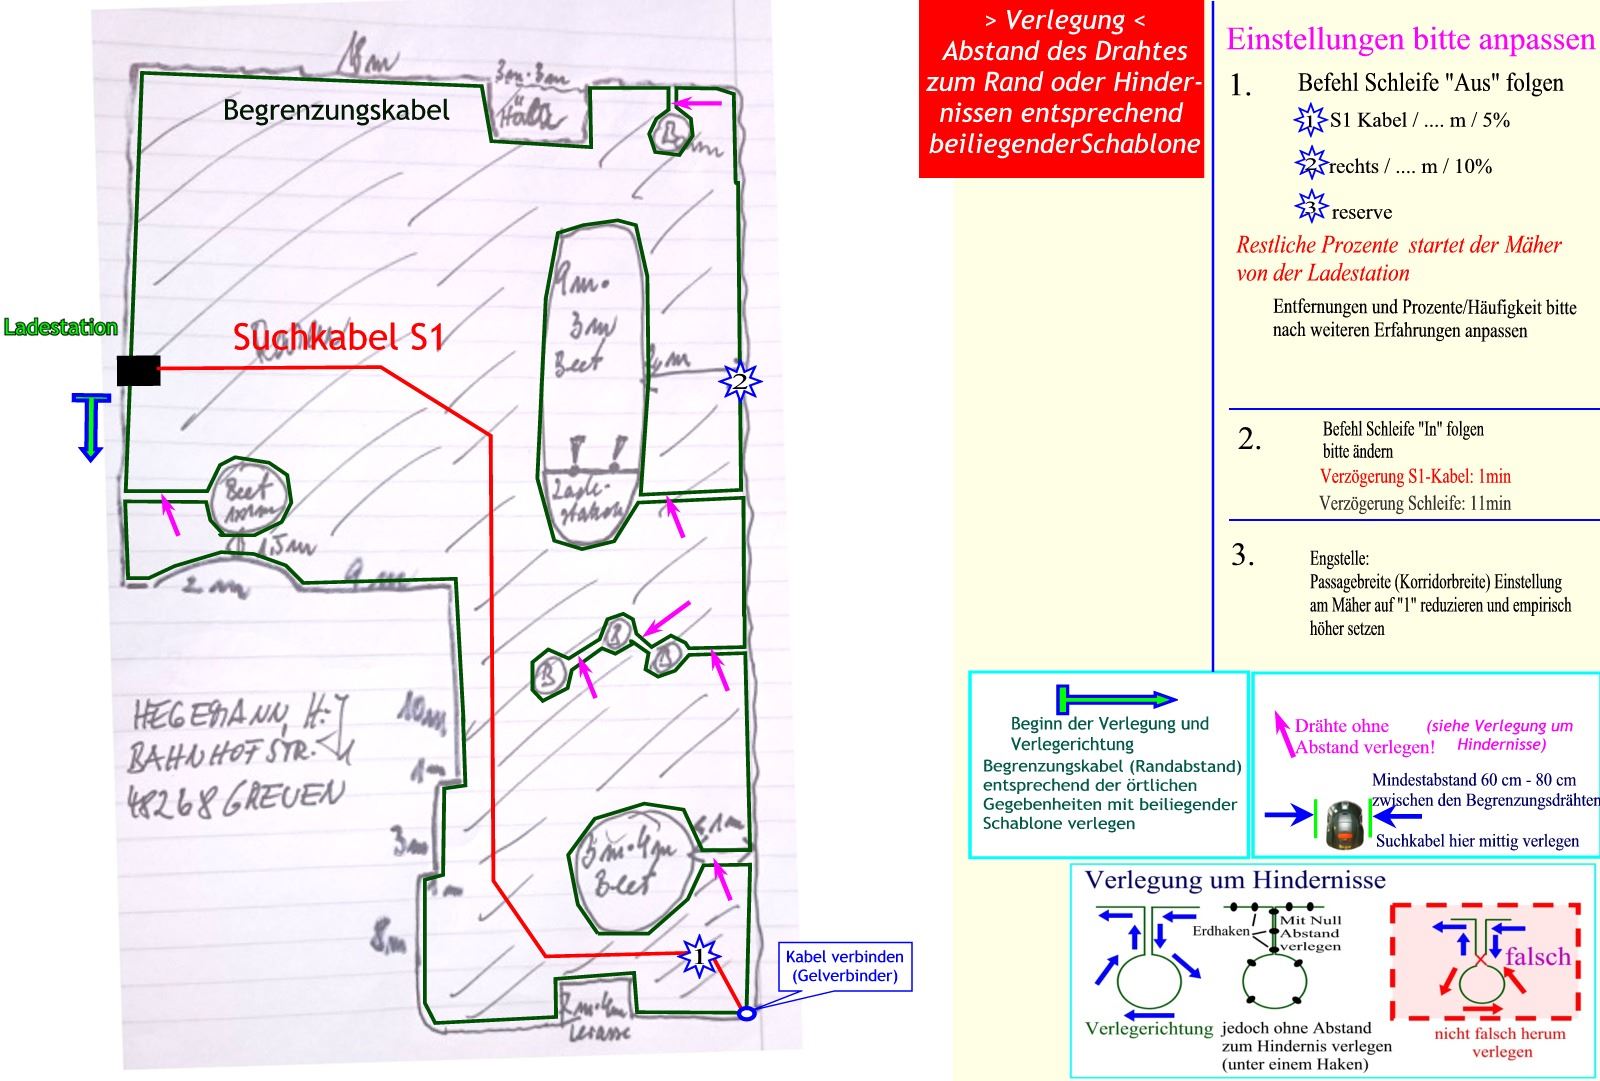 18m
3m·3m
Begrenzungskabel
B
Ladestation
Suchkabel S1
9m·
3m
Beet
2
Beet
1x1m
1,5m
2m
9m
Lade-
station
B
B
B
HEGEMANN, H.-J
BAHNHOFSTR.
48268 GREVEN
10m
1m
3m
1m
8m
1m
3m·4m
Beet
1
2m·4m
Terasse
Kabel verbinden
(Gelverbinder)
> Verlegung <
Abstand des Drahtes
zum Rand oder Hinder-
nissen entsprechend
beiliegenderSchablone
Einstellungen bitte anpassen
1. Befehl Schleife "Aus" folgen
1 S1 Kabel / .... m / 5%
2 rechts / .... m / 10%
3 reserve
Restliche Prozente startet der Mäher
von der Ladestation
Entfernungen und Prozente/Häufigkeit bitte
nach weiteren Erfahrungen anpassen
2. Befehl Schleife "In" folgen
bitte ändern
Verzögerung S1-Kabel: 1min
Verzögerung Schleife: 11min
3. Engstelle:
Passagebreite (Korridorbreite) Einstellung
am Mäher auf "1" reduzieren und empirisch
höher setzen
Beginn der Verlegung und
Verlegerichtung
Begrenzungskabel (Randabstand)
entsprechend der örtlichen
Gegebenheiten mit beiliegender
Schablone verlegen
Drähte ohne
Abstand verlegen!
(siehe Verlegung um
Hindernisse)
Mindestabstand 60 cm - 80 cm
zwischen den Begrenzungsdrähten
Suchkabel hier mittig verlegen
Verlegung um Hindernisse
Verlegerichtung
Erdhaken
Mit Null
Abstand
verlegen
jedoch ohne Abstand
zum Hindernis verlegen
(unter einem Haken)
falsch
nicht falsch herum
verlegen